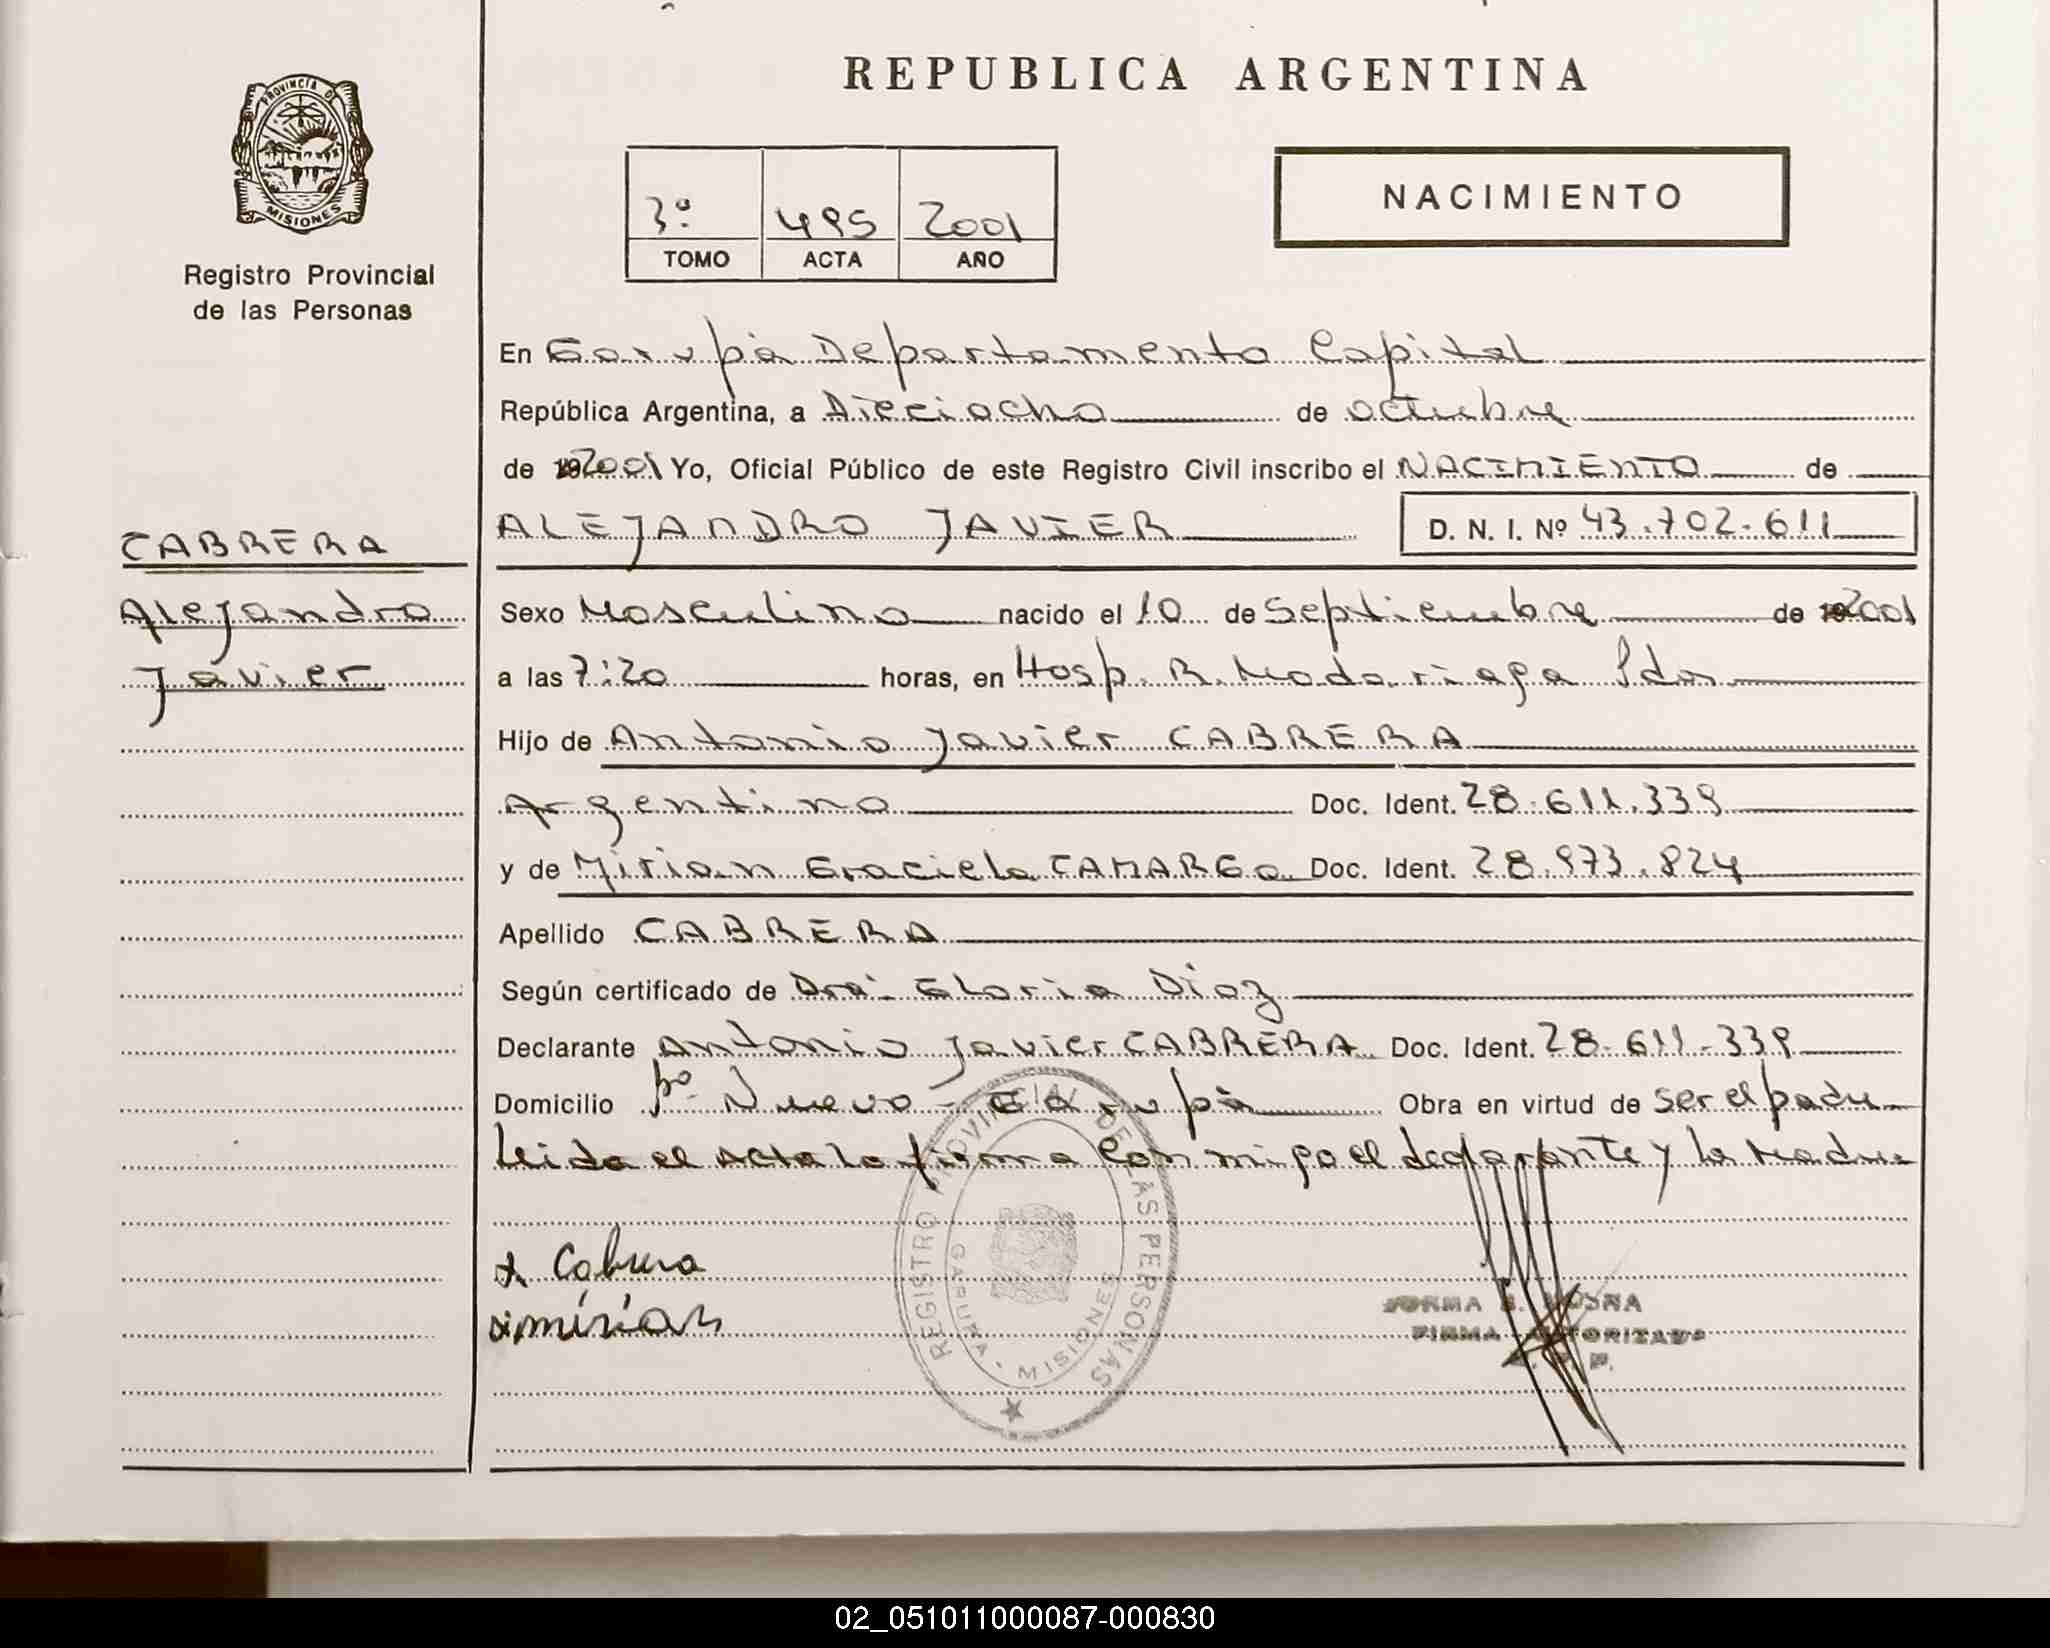 REPUBLICA ARGENTINA
PROVINCIA DE
MISIONES
Registro Provincial
de las Personas
3º 495 2001
TOMO ACTA AÑO
NACIMIENTO
En Garupá Departamento Capital
República Argentina, a Dieciocho de octubre
de 2001 Yo, Oficial Público de este Registro Civil inscribo el NACIMIENTO de
CABRERA
Alejandro
Javier
ALEJANDRO JAVIER D. N. I. Nº 43.702.611
Sexo Masculino nacido el 10 de Septiembre de 2001
a las 7:20 horas, en Hosp. R. Madariaga Pdas
Hijo de Antonio Javier CABRERA
Argentino Doc. Ident. 28.611.339
y de Mirian Graciela CAMARGO Doc. Ident. 28.973.824
Apellido CABRERA
Según certificado de Dra. Gloria Diaz
Declarante Antonio Javier CABRERA Doc. Ident. 28-611-339
Domicilio Bº Nuevo - Garupá Obra en virtud de ser el padre
Leida el acta la firma conmigo el declarante y la Madre
Cabrera
mirian
REGISTRO PROVINCIAL DE LAS PERSONAS
GARUPA - MISIONES
NORMA
FIRMA AUTORIZADA
02_051011000087-000830